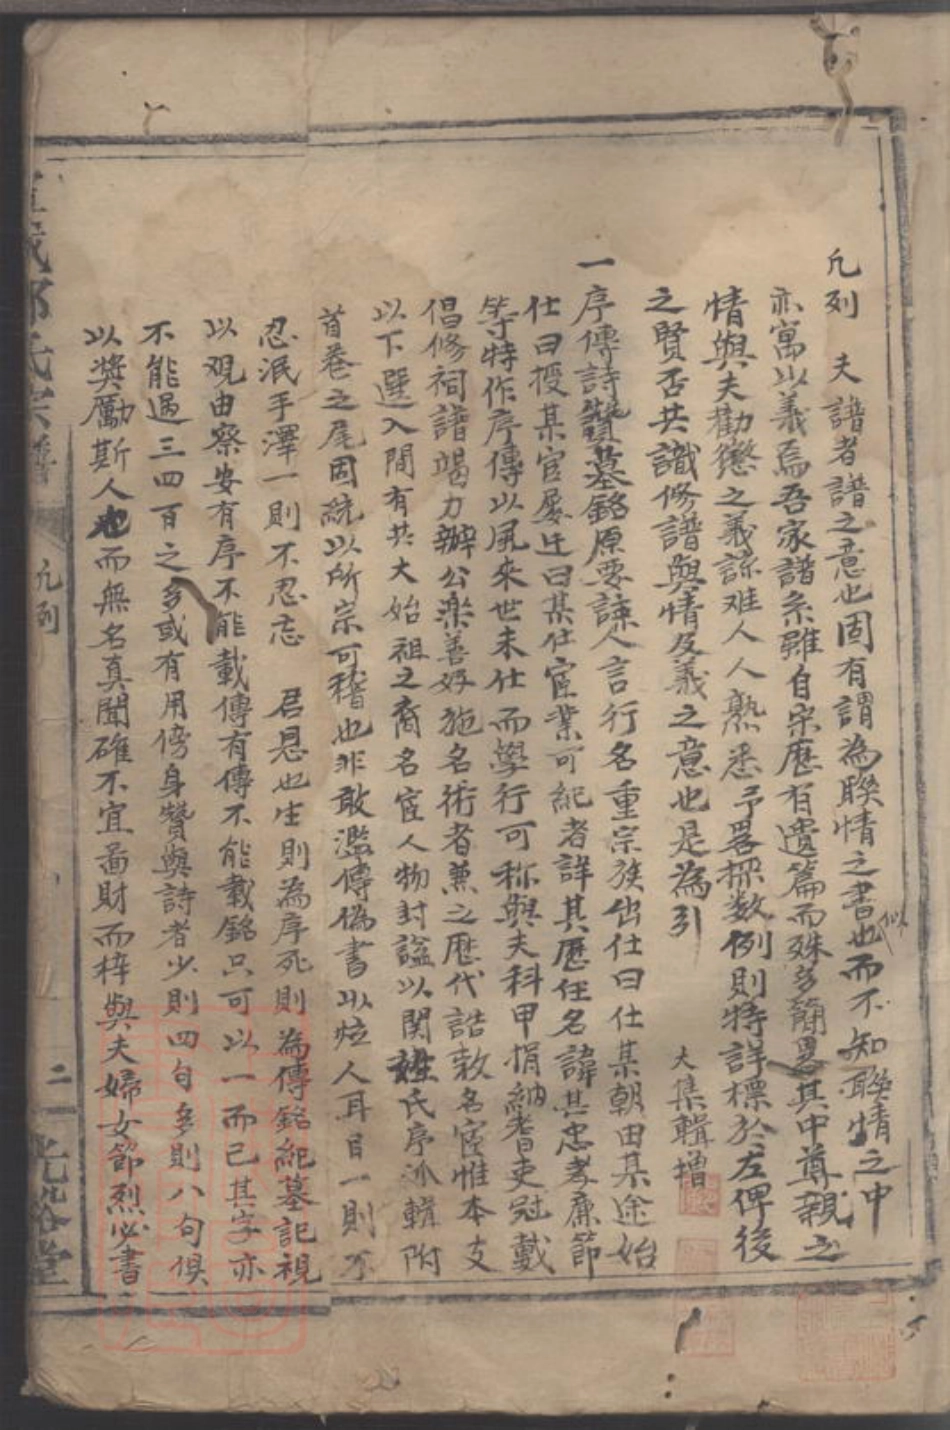 凡列　夫譜者譜之意也固有謂為聯情之書也而不知聯情之中
似
亦寓以義焉吾家譜系雖自宗歷有遺篇而殊多簡畧其中尊親之
情與夫勸懲之義諒难人人熟悉予畧採数例則特詳標於左俾後
之賢否共識修譜與情及義之意也是為引
大集輯增
一序傳詩贊墓銘原要諫人言行名重宗族出仕曰仕某朝由某途始
仕曰授某官屡迁曰某仕宦業可紀者詳其歷任名諱其忠孝廉節
等特作序傳以風來世未仕而學行可称與夫科甲捐納耆吏冠戴
倡修祠譜竭力辦公樂善好施名術者兼之歷代誥敕名宦惟本支
以下選入間有共大始祖之裔名宦人物封謚以関姓氏序派輯附
首卷之尾固統以所宗可稽也非敢濫傳偽書以炫人耳目一則不
忍泯手澤一則不忍忘　君恩也生則為序死則為傳銘紀墓記視
以观由察安有序不能載傳有傳不能載銘只可以一而已其字亦
不能過三四百之多或有用傍身贊與詩者少則四句多則八句俱
以獎勵斯人也而無名真聞確不宜啚財而梓與夫婦女節烈必書
氏宗譜
凡列
二
光裕堂